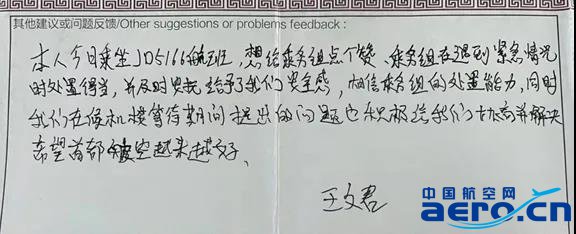 其他建议或问题反馈/Other suggestions or problems feedback :
本人今日乘坐JD5166航班，想给乘务组点个赞、乘务组在遇到紧急情况
时处置得当，并及时安抚给予了我们安全感，相信乘务组的处置能力，同时
我们在候机楼等待期间提出的问题也积极给我们协商并解决
希望首都航空越来越好、
王文君
中国航空网
aero.cn